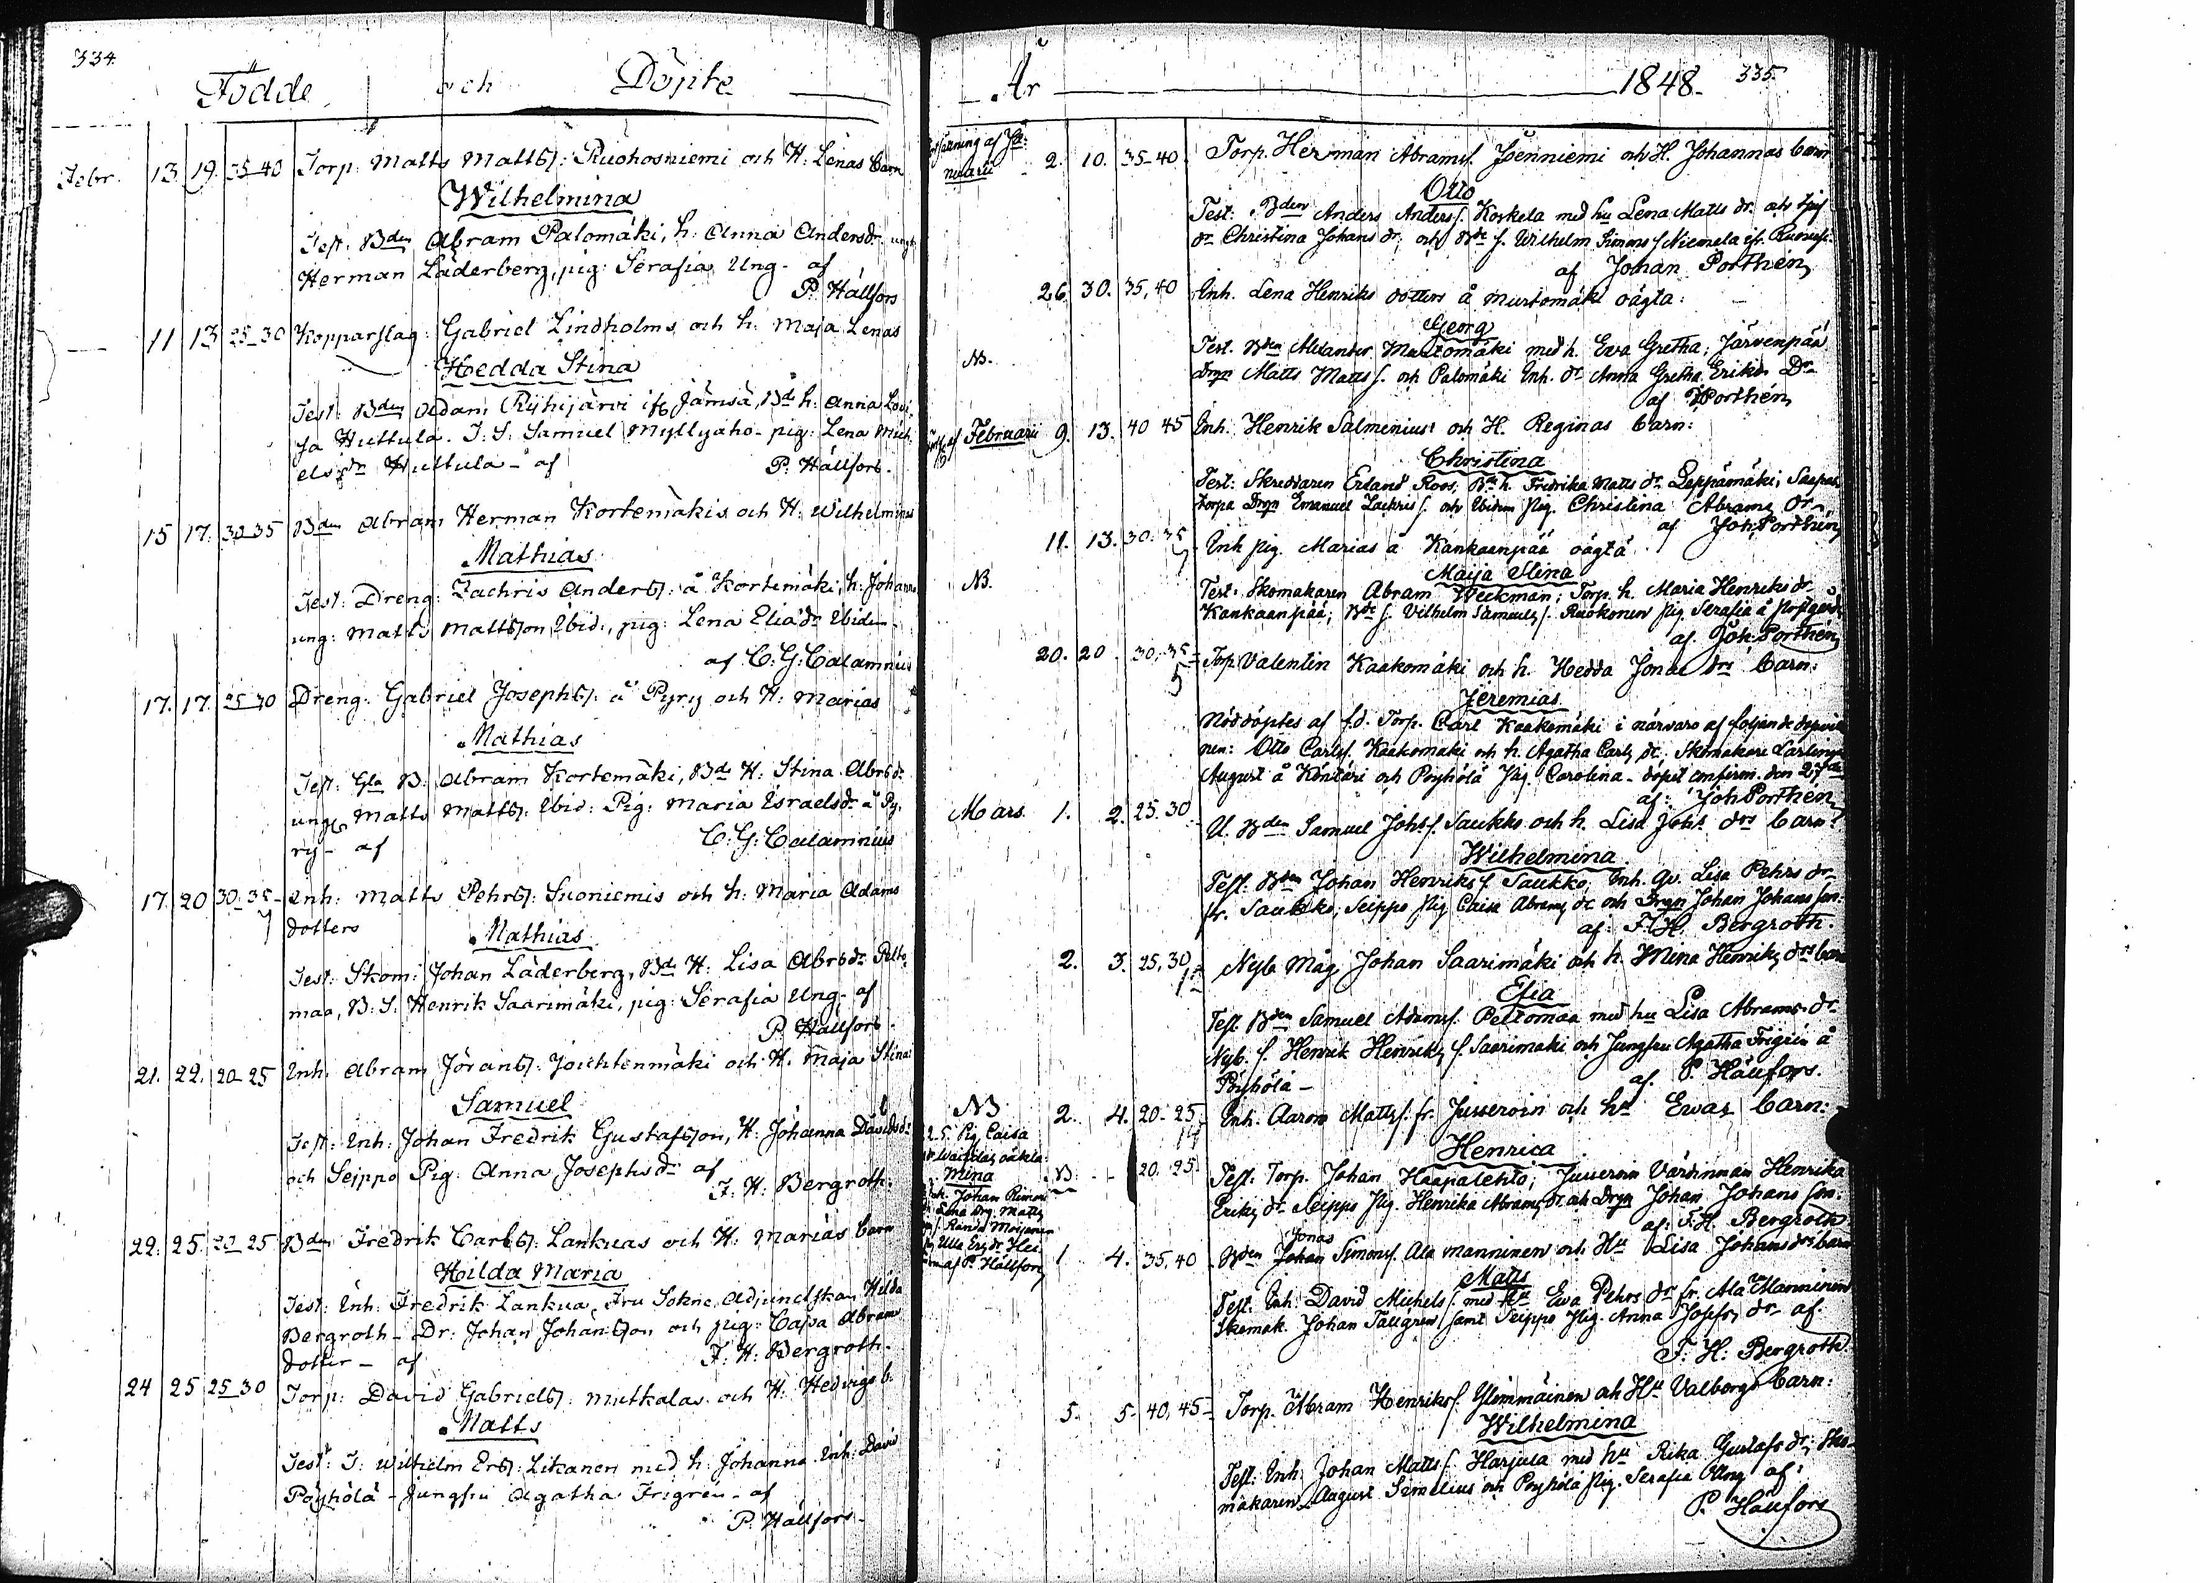 334.
Födde och Döpte
Febr. 13 19. 35-40 Torp. Matts Mattss: Ruohoniemi och H: Lenas barn
Wilhelmina
Test: Bden Abram Palomäki, h: Anna Andersdr ungk:
Herman Läderberg, pig: Serafia Ung- af
P. Hällfors
11 13 25-30 Kopparslag: Gabriel Lindholms och h: Maja Lenas
Hedda Stina
Test: Bden Adam Ryhijärvi ifr Jämsä, Bds h: Anna Lovi-
sa Huttula. T. S. Samuel Myllyaho- pig: Lena Mich-
elsdr Huttula- af P. Hällfors.
15 17. 30-35 Bden Abram Herman Kortemäkis och H: Wilhelminas
Mathias
Test: Dreng: Zachris Anderss: å Kortemäki, h: Johanna
ung: Matts Mattsson, Ibid:, pig: Lena Eliædr Ibidem-
af C: G: Calamnius
17. 17. 25-30 Dreng: Gabriel Josephss: å Pyry och H: Marias
Mathias
Test: Gla B: Abram Kortemäki, Bds H: Stina Abrsdr
ungk Matts Mattss: Ibid: Pig: Maria Israelsdr å Py-
ry- af C: G: Calamnius
17. 20 30-35- Inh: Matts Pehrss: Suoniemis och h: Maria Adams
7 dotters
Mathias
Test: Skom: Johan Läderberg, Bds H: Lisa Abrsdr Pelto-
maa, B: S: Henrik Saarimäki, pig: Serafia Ung- af
P. Hällfors.
21. 22. 20-25 Inh: Abram Göranss: Joichtenmäki och H: Maja Stinas
Samuel
Test: Inh: Johan Fredrik Gustafsson, H: Johanna Davidsdr
och Seippo Pig: Anna Josephsdr af
F: H: Bergroth.
22. 25. 20-25 Bden Fredrik Carlss: Lankuas och H: Marias barn
Hilda Maria
Test: Inh: Fredrik Lankua, Fru Sokne Adjunctskan Hilda
Bergroth- Dr: Johan Johansson och pig: Cajsa Abrams
dotter- af F: H: Bergroth.
24 25 25-30 Torp: David Gabrielss: Mutkalas och H: Hedvigs b.
Matts
Test: T: Wilhelm Erss: Likanen med h: Johanna Inh: David
Pöyhölä- Jungfru Agatha Frigrén- af
P. Hällfors-
År 1848. 335.
2. 10. 35-40. Torp. Herman Abramss. Joenniemi och H. Johannas barn
Otto
Test: Bden Anders Anderss. Koskela med hu Lena Matts dr.
dr Christina Johans dr; och Bde s. Wilhelm Simons s Niemelä
af Johan Porthén
26. 30. 35, 40 Inh. Lena Henriks dotters å Murtomäki oägta:
Georg
NB. Test. Bden Alexander Murtomäki med h. Eva Gretha; Järvenpää
Drgn Matts Matts s. och Palomäki Inh. dr Anna Gretha Eriks Dr
af Porthén
Februarii 9. 13. 40 45 Inh. Henrik Salmenius och H. Reginas barn:
Christina
Test: Skreddaren Erland Roos, Bds h. Fredrika Matts dr Leppämäki;
torpa Drgn Emanuel Zachris s. och Ibidem Pig. Christina Abrams Dr
af Joh: Porthén
11. 13. 30. 35 Inh pig. Marias å Kankaanpää oägta
Maija Stina
NB. Test. Skomakaren Abram Weckman; Torp. h. Maria Henriks dr
Kankaanpää; Bde s. Vilhelm Samuels s. Ruokonen Pig. Serafia å
af Joh: Porthén
20. 20. 30, 35 Torp. Valentin Kaakomäki och h. Hedda Jonæ drs barn:
Jeremias
Nöddöptes af f.d. Torp. Carl Kaakomäki i närvaro af följande
nen: Otto Carls s. Kaakomäki och h. Agatha Carls dr; Skomakare Lärling
August å Köntäri och Pöyhölä Pig. Carolina- döpet confirm. den 27de
af: Joh Porthén
Mars. 1. 2. 25. 30. U. Bden Samuel Johs s. Saukko och h. Lisa Johs drs barn:
Wilhelmina
Test. Bden Johan Henriks s Saukko, Inh. Qv. Lisa Pehrs dr
fr. Saukko; Seippo Pig Caisa Abrams dr och Drgn Johan Johans son.
af: F. H. Bergroth.
2. 3. 25, 30 Nyb Måg Johan Saarimäki och h Mina Henriks drs barn
Efia
Test. Bden Samuel Adams s. Peltomaa med hu Lisa Abrams dr
Nyb. s. Henrik Henriks s. Saarimäki och Jungfru Agatha Frigrén å
Pöyhölä- af. P. Hällfors.
NB 2. 4. 20-25. Inh. Aaron Matts s. fr. Jusseroin och hu Evas barn:
Henrica
Test. Torp. Johan Haapalehto; Jusseroin Värdinnan Henrika
Eriks dr Seippo Pig. Henrika Abrams dr och Drgn Johan Johans son:
af: F. H. Bergroth.
25. Pig Caisa
Mina
NB. 20. 25.
af P. Hällfors
1 4. 35, 40 Bden Jonas Johan Simons s. Ala Manninen och Hu Lisa Johans drs barn
Matts
Test. Inh. David Michels s. med Hu Eva Pehrs dr fr. Ala Manninen
Skomak. Johan Tallgren samt Seippo Pig. Anna Josefs dr af.
F. H: Bergroth.
5. 5. 40, 45 Torp. Abram Henriks s. Ylimmäinen och Hu Valborgs barn:
Wilhelmina
Test: Inh. Johan Matts s. Harjula med hu Rika Gustafs dr; Sko-
makaren August Simelius och Pöyhölä Pig. Serafia Ung af:
P. Hällfors